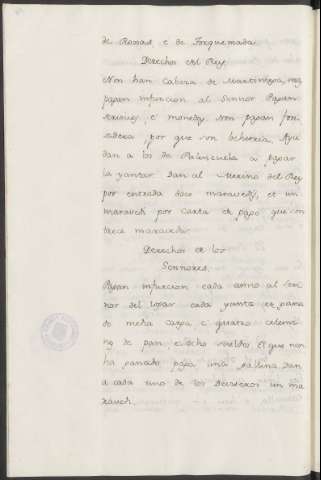 de Roxas e de Torquemada
Derechos del Rey
Non han Cabeza de Martiniega, nin
pagan infurcion al Sennor Pagan
servicios e moneda Non pagan fon-
sadera por que son behetria, Ayu
dan a los de Palenzuela a pagar
la yantar Dan al Merino del Rey
por entrada doce maravedis, et un
maravedi por Carta et pago que con
trece maravedis.
Derechos de los
Sennores.
Pagan infurcion cada anno al Sen-
nor del logar cada yunta
de media carga e quatro celemi
nes de pan e ocho sueldos El que non
ha ganado paga una gallina Dan
a cada uno de los Deviseros un ma
ravedi.